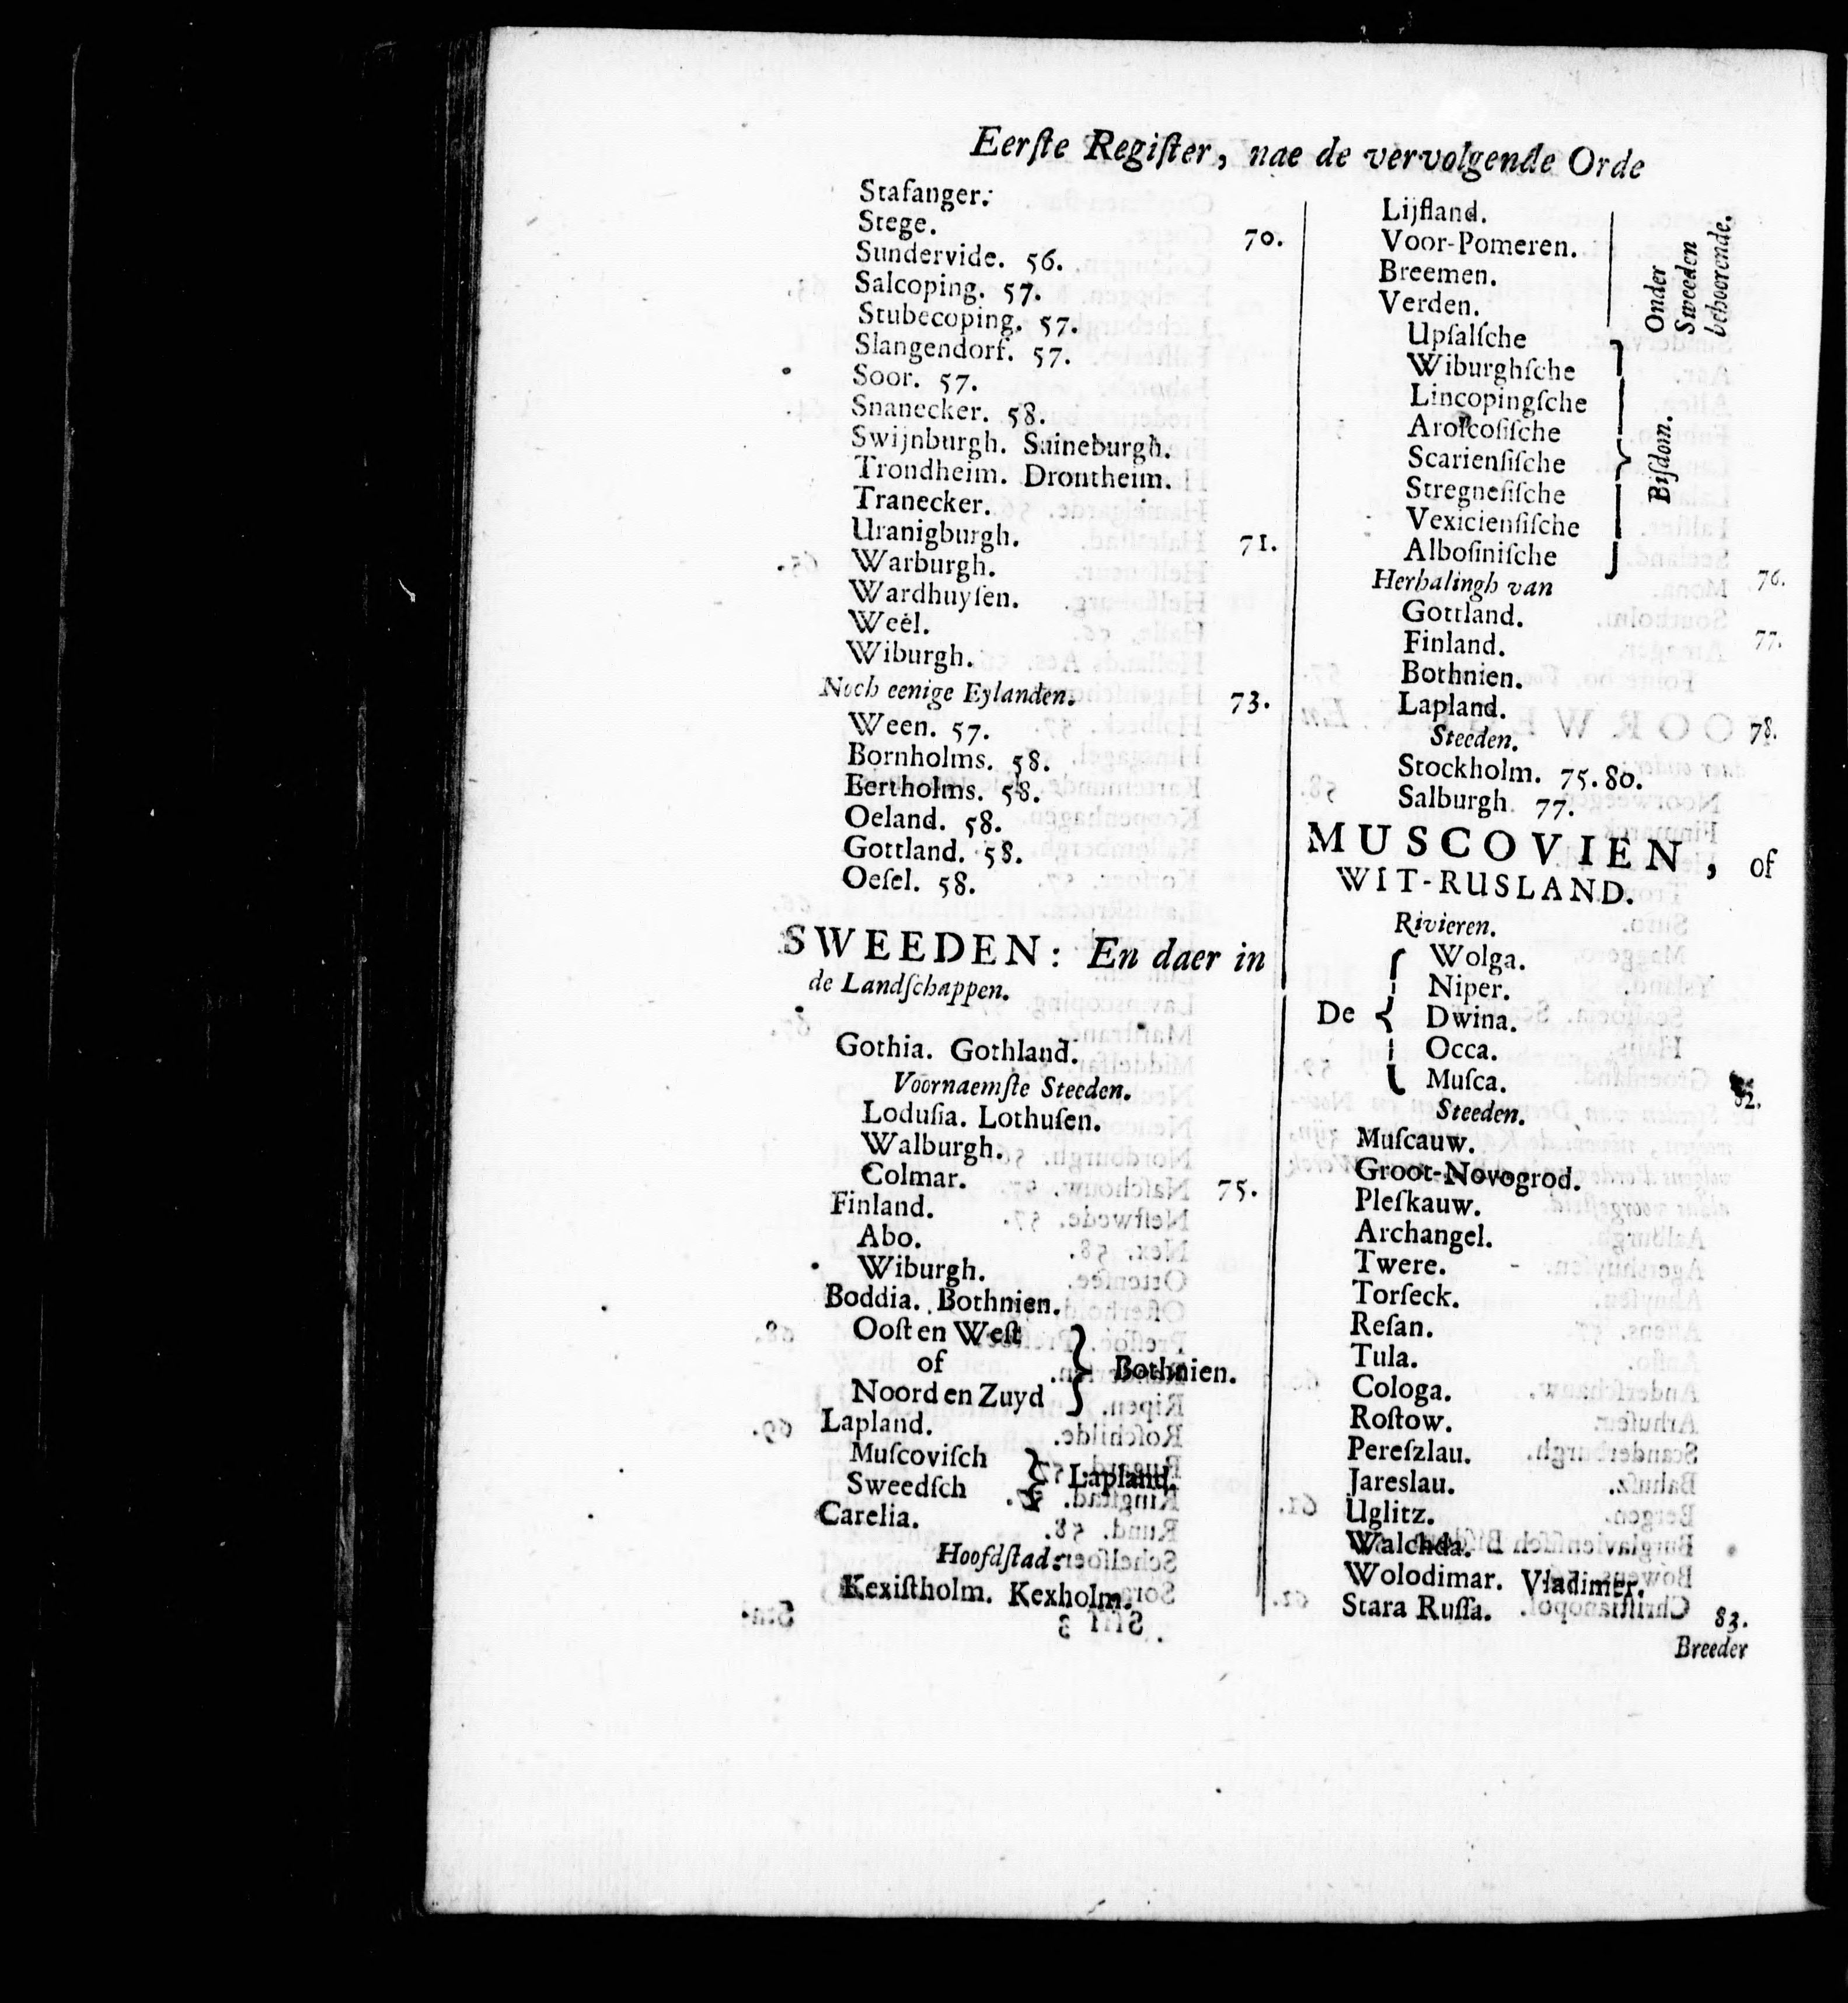 Eerſte Regiſter, nae de vervolgende Orde
Stafanger.
Stege. 70.
Sundervide. 56.
Salcoping. 57.
Stubecoping. 57.
Slangendorf. 57.
Soor. 57.
Snanecker. 58.
Swijnburgh. Saineburgh.
Trondheim. Drontheim.
Tranecker.
Uranigburgh. 71.
Warburgh.
Wardhuyſen.
Weel.
Wiburgh.
Noch eenige Eylanden. 73.
Ween. 57.
Bornholms. 58.
Bertholms. 58.
Oeland. 58.
Gottland. 58.
Oeſel. 58.
SWEEDEN: En daer in
de Landſchappen.
Gothia. Gothland.
Voornaemſte Steeden.
Loduſia. Lothuſen.
Walburgh.
Colmar. 75.
Finland.
Abo.
Wiburgh.
Boddia. Bothnien.
Ooſt en Weſt
of
Noord en Zuyd
Bothnien.
Lapland.
Muſcoviſch
Sweedſch
Lapland.
Carelia.
Hoofdſtad:
Kexiſtholm. Kexholm.
Lijfland.
Voor-Pomeren.
Breemen.
Verden.
Onder
Sweeden
behoorende.
Upſalſche
Wiburghſche
Lincopingſche
Aroſcoſiſche
Scarienſiſche
Stregneſiſche
Vexicienſiſche
Alboſiniſche
Biſdom.
76.
Herhalingh van
Gottland.
Finland. 77.
Bothnien.
Lapland.
Steeden. 78.
Stockholm. 75. 80.
Salburgh. 77.
MUSCOVIEN, of
WIT-RUSLAND.
Rivieren.
De
Wolga.
Niper.
Dwina.
Occa.
Muſca.
82.
Steeden.
Muſcauw.
Groot-Novogrod.
Pleſkauw.
Archangel.
Twere.
Torſeck.
Reſan.
Tula.
Cologa.
Roſtow.
Pereſzlau.
Jareslau.
Uglitz.
Walchda.
Wolodimar. Vladimer.
Stara Ruſſa. 83.
Breeder